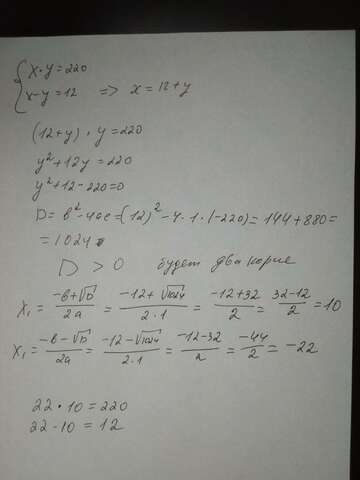 x·y=220
x-y=12 => x=12+y
(12+y)·y=220
y²+12y=220
y²+12-220=0
D=b²-4ac=(12)²-4·1·(-220)=144+880=
=1024
D>0 будет два корне
x₁=(-b+√D)/2a=(-12+√1024)/2·1=(-12+32)/2=(32-12)/2=10
x₁=(-b-√D)/2a=(-12-√1024)/2·1=(-12-32)/2=-44/2=-22
22·10=220
22-10=12